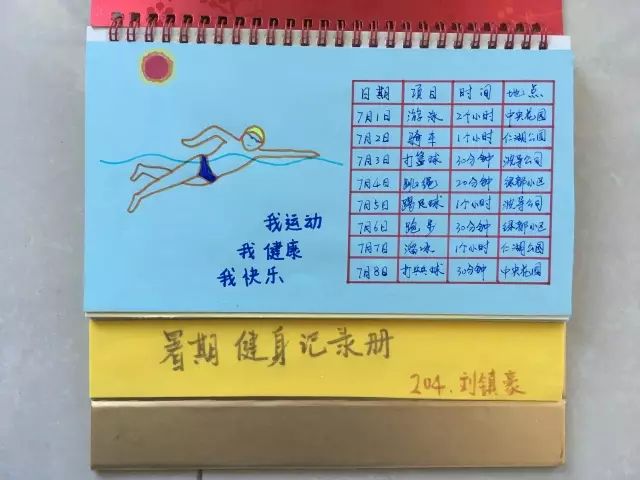 日期 项目 时间 地点
7月1日 游泳 2个小时 中央花园
7月2日 骑车 1个小时 仁湖公园
7月3日 打篮球 30分钟 波导公司
7月4日 跳绳 20分钟 绿都小区
7月5日 踢足球 1个小时 波导公司
7月6日 跑步 30分钟 绿都小区
7月7日 溜冰 1个小时 仁湖公园
7月8日 打乒乓球 30分钟 中央花园
我运动
我健康
我快乐
暑期健身记录册
204.刘镇豪